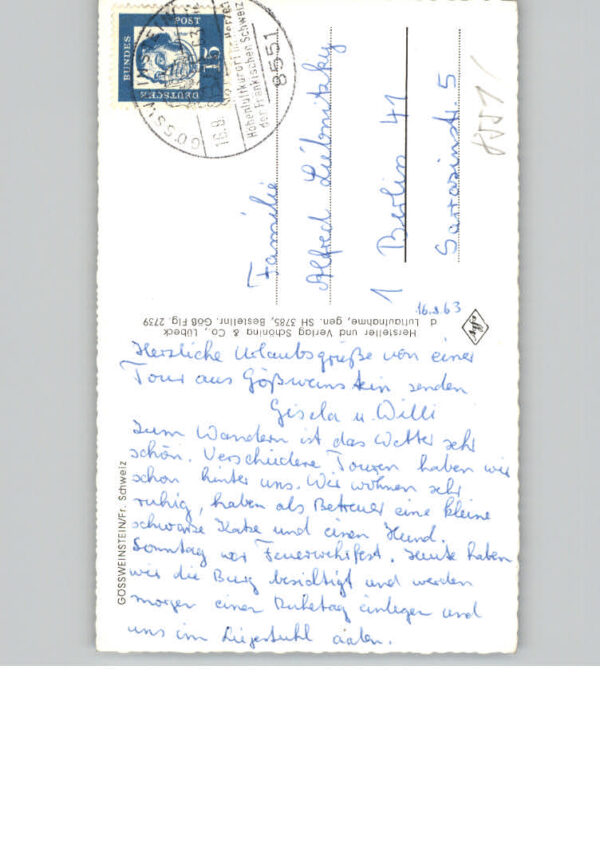 DEUTSCHE
BUNDES
POST
15
GÖSSWEINSTEIN
16.8.
Höhenluftkurort
der Fränkischen Schweiz
8551
8551
Familie
Alfred Liebnitzky
1 Berlin 41
Sarrazinstr. 5
16.8.63
Hersteller und Verlag Schöning & Co., Lübeck
d Luftaufnahme, gen. SH 3785, Bestellnr. Göß Flg. 2739
GÖSSWEINSTEIN/Fr. Schweiz
Herzliche Urlaubsgrüße von einer
Tour aus Gößweinstein senden
Gisela u. Willi
Zum Wandern ist das Wetter sehr
schön. Verschiedene Touren haben wir
schon hinter uns. Wir wohnen sehr
ruhig, haben als Betreuer eine kleine
schwarze Katze und einen Hund.
Sonntag war Feuerwehrfest. Heute haben
wir die Burg besichtigt und werden
morgen einen Ruhetag einlegen und
uns im Liegestuhl aalen.